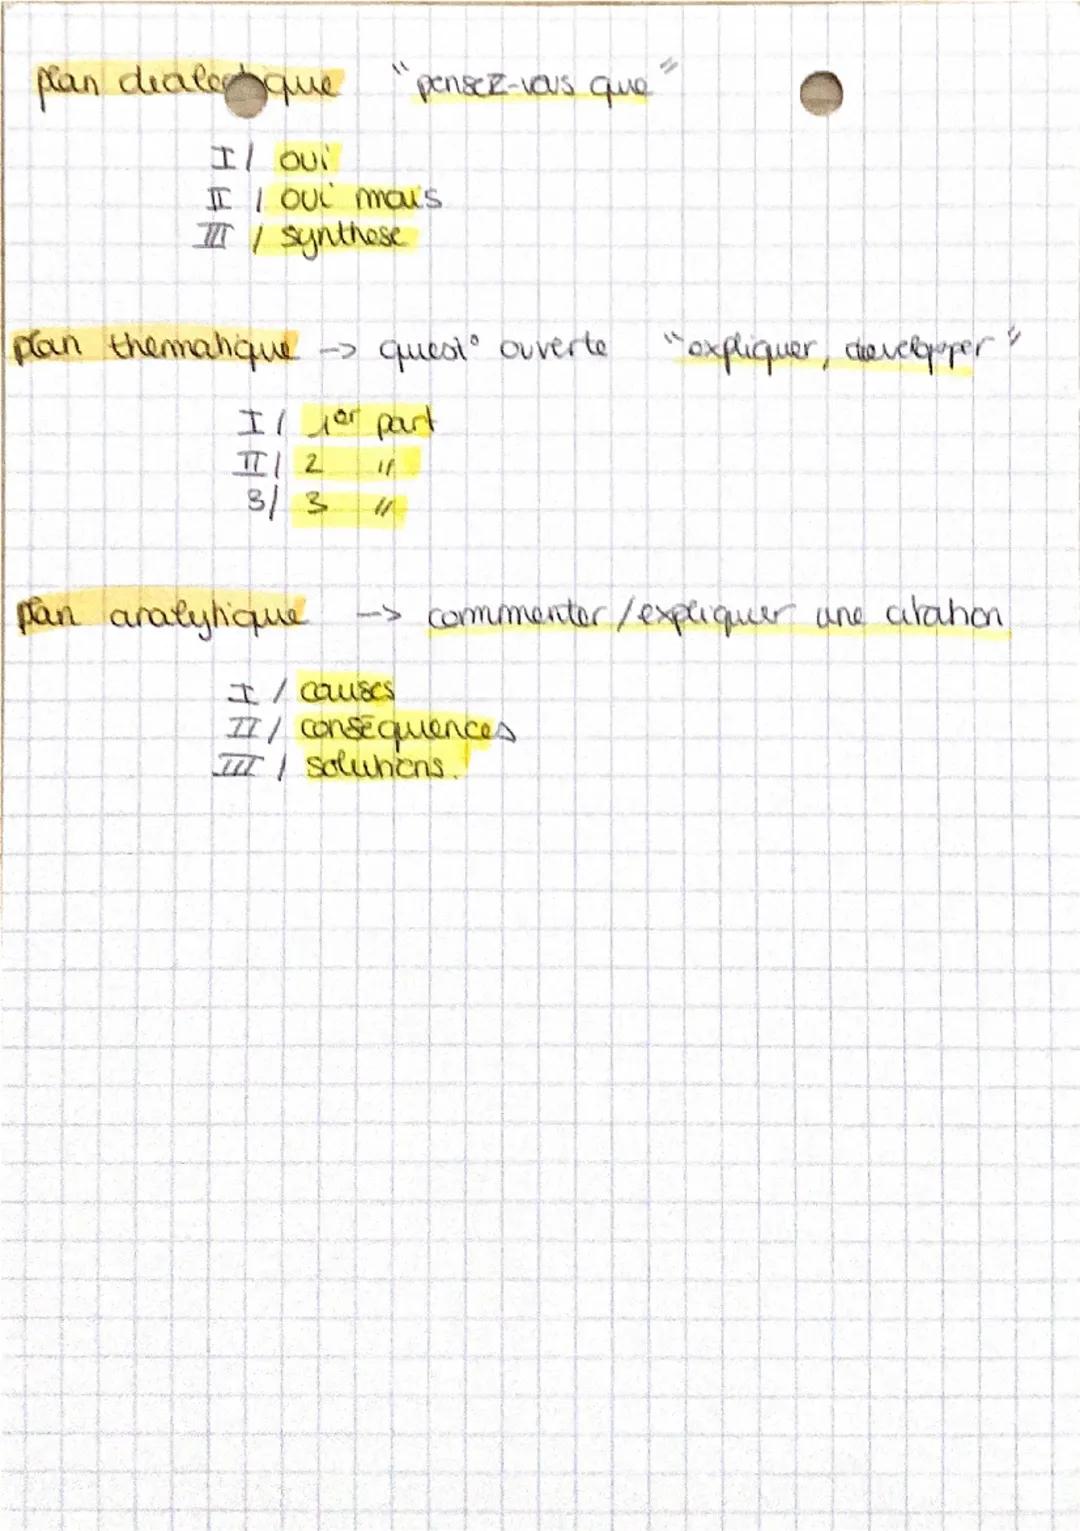 plan dialectique "pensez-vous que"
I / oui
II / oui mais
III / synthese
plan thematique -> quest° ouverte "expliquer, developper"
I / 1er part
II / 2 "
3/ 3 "
plan analytique --> commenter / expliquer une citation
I / causes
II / conséquences
III / solutions.